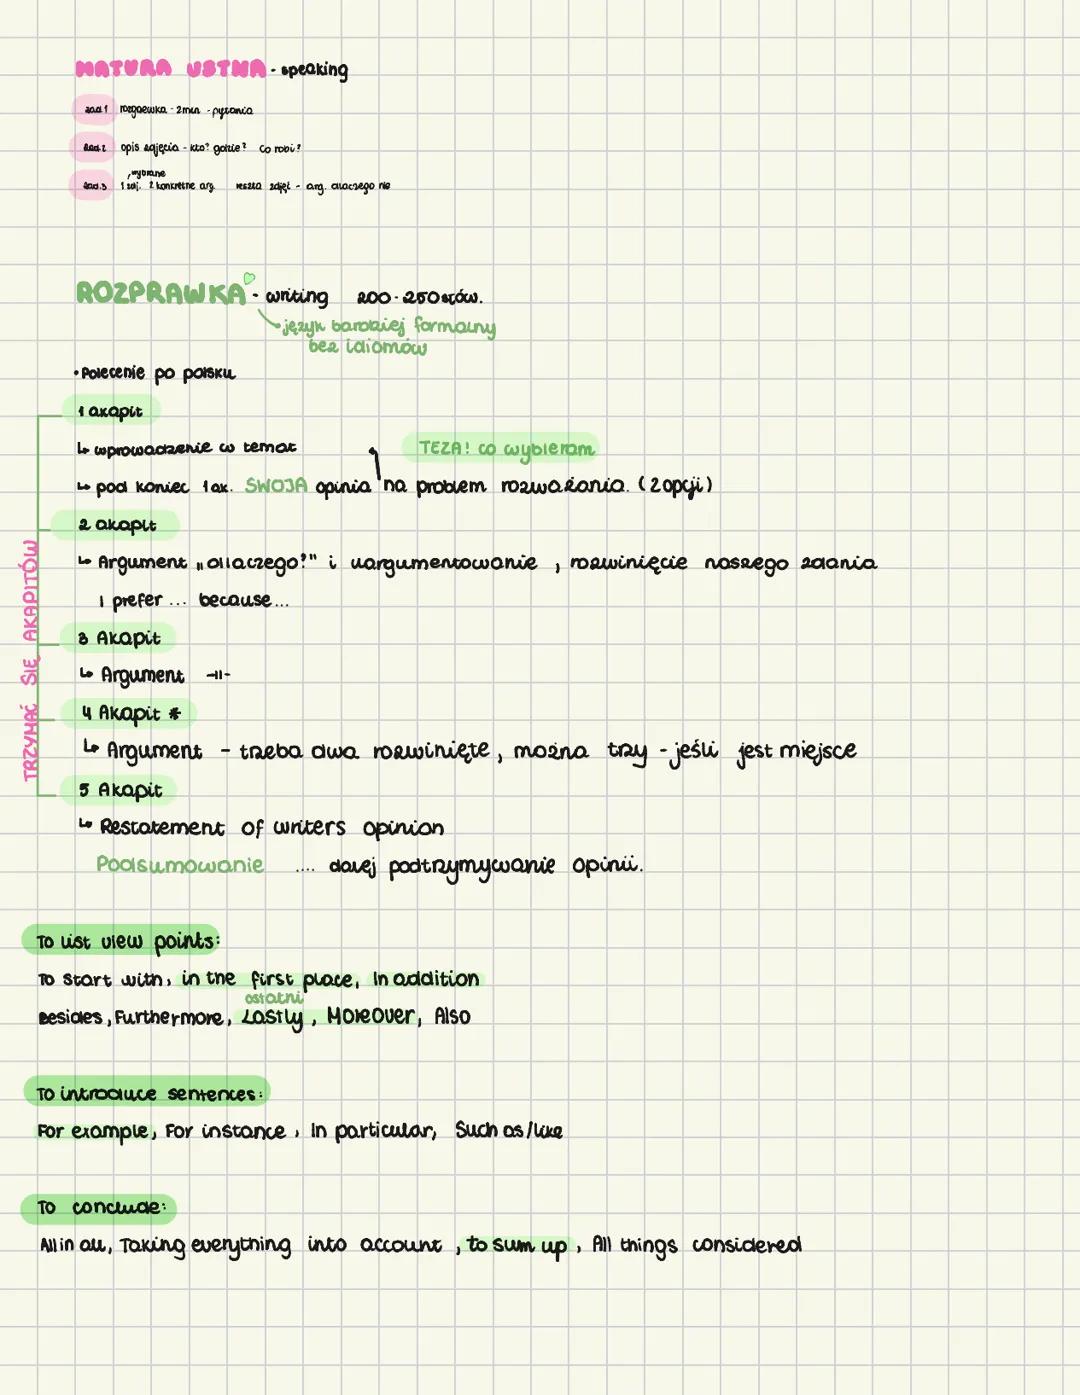 MATURA USTNA - speaking
zad.1 rozgrzewka - 2min - pytania
zad.2 opis zdjęcia - kto? gdzie? co robi?
wybrane
zad.3 1 zdj. 2 konkretne arg. reszta zdjęć - arg. dlaczego nie
ROZPRAWKA - writing 200-250 słów.
język bardziej formalny
bez idiomów
• Polecenie po polsku
1 akapit
↳ wprowadzenie w temat
TEZA! co wybieram
↳ pod koniec 1 ak. SWOJA opinia na problem rozważania. (2 opcji)
2 akapit
↳ Argument „dlaczego?" i uargumentowanie, rozwinięcie naszego zdania
I prefer ... because...
3 Akapit
↳ Argument -||-
4 Akapit *
↳ Argument - trzeba dwa rozwinięte, można trzy - jeśli jest miejsce
5 Akapit
↳ Restatement of writers opinion
Podsumowanie .... dalej podtrzymywanie opinii.
TRZYMAĆ SIĘ AKAPITÓW
To list view points:
To start with, in the first place, In addition
ostatni
Besides, Furthermore, Lastly, Moreover, Also
To introduce sentences:
For example, For instance, In particular, Such as/like
To conclude:
All in all, Taking everything into account, to sum up, All things considered